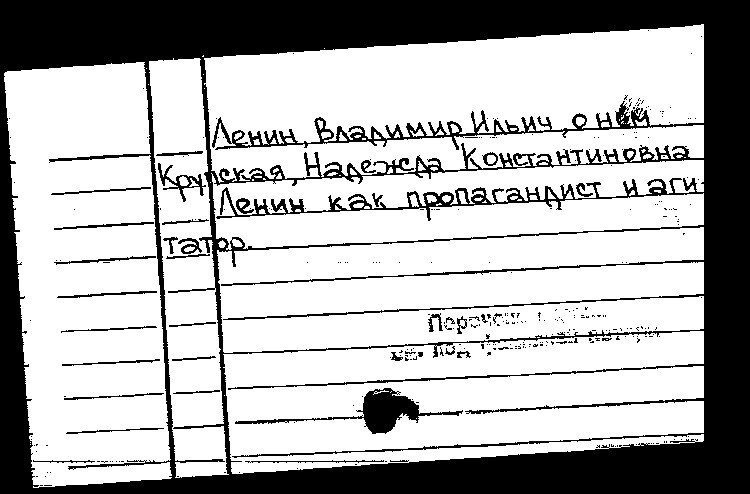 Ленин, Владимир Ильич, о нем
Крупская, Надежда Константиновна
Ленин как пропагандист и аги-
татор.
Перечень
см. под фамилией автора